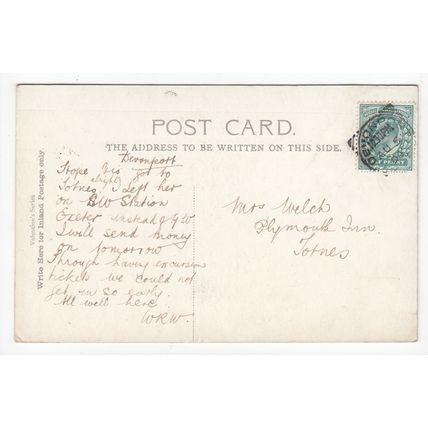 POST CARD.
THE ADDRESS TO BE WRITTEN ON THIS SIDE.
Valentine's Series
Write Here for Inland Postage only.
Devonport
Hope got to
alright
Totnes I left her
on SW Station
Exeter instead of GW
I will send money
on tomorrow
Through having excursion
tickets we could not
get in so early.
All well here.
WRW.
Mrs Welch
Plymouth Inn.
Totnes